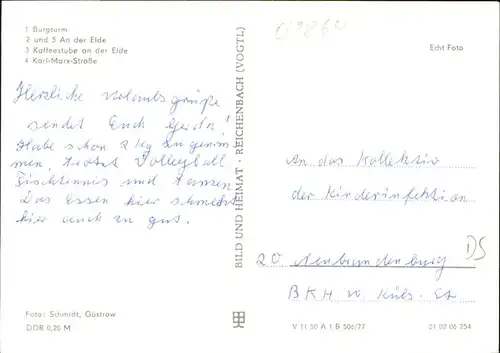 1 Burgturm
2 und 5 An der Elde
3 Kaffeestube an der Elde
4 Karl-Marx-Straße
Herzliche Urlaubsgrüße
sendet Euch Gerdi!
Habe schon 2 kg zugenom
men, trotzt Volleyball
Tischtennis und tanzen.
Das Essen hier schmeckt
hier auch zu gut.
Foto: Schmidt, Güstrow
DDR 0,20 M
BILD UND HEIMAT · REICHENBACH (VOGTL)
Echt Foto
An das Kollektiv
der Kinderinfektion
20 Neubrandenburg
DS
BKH
V 11 50 A 1 B 506/77
01 02 06 254